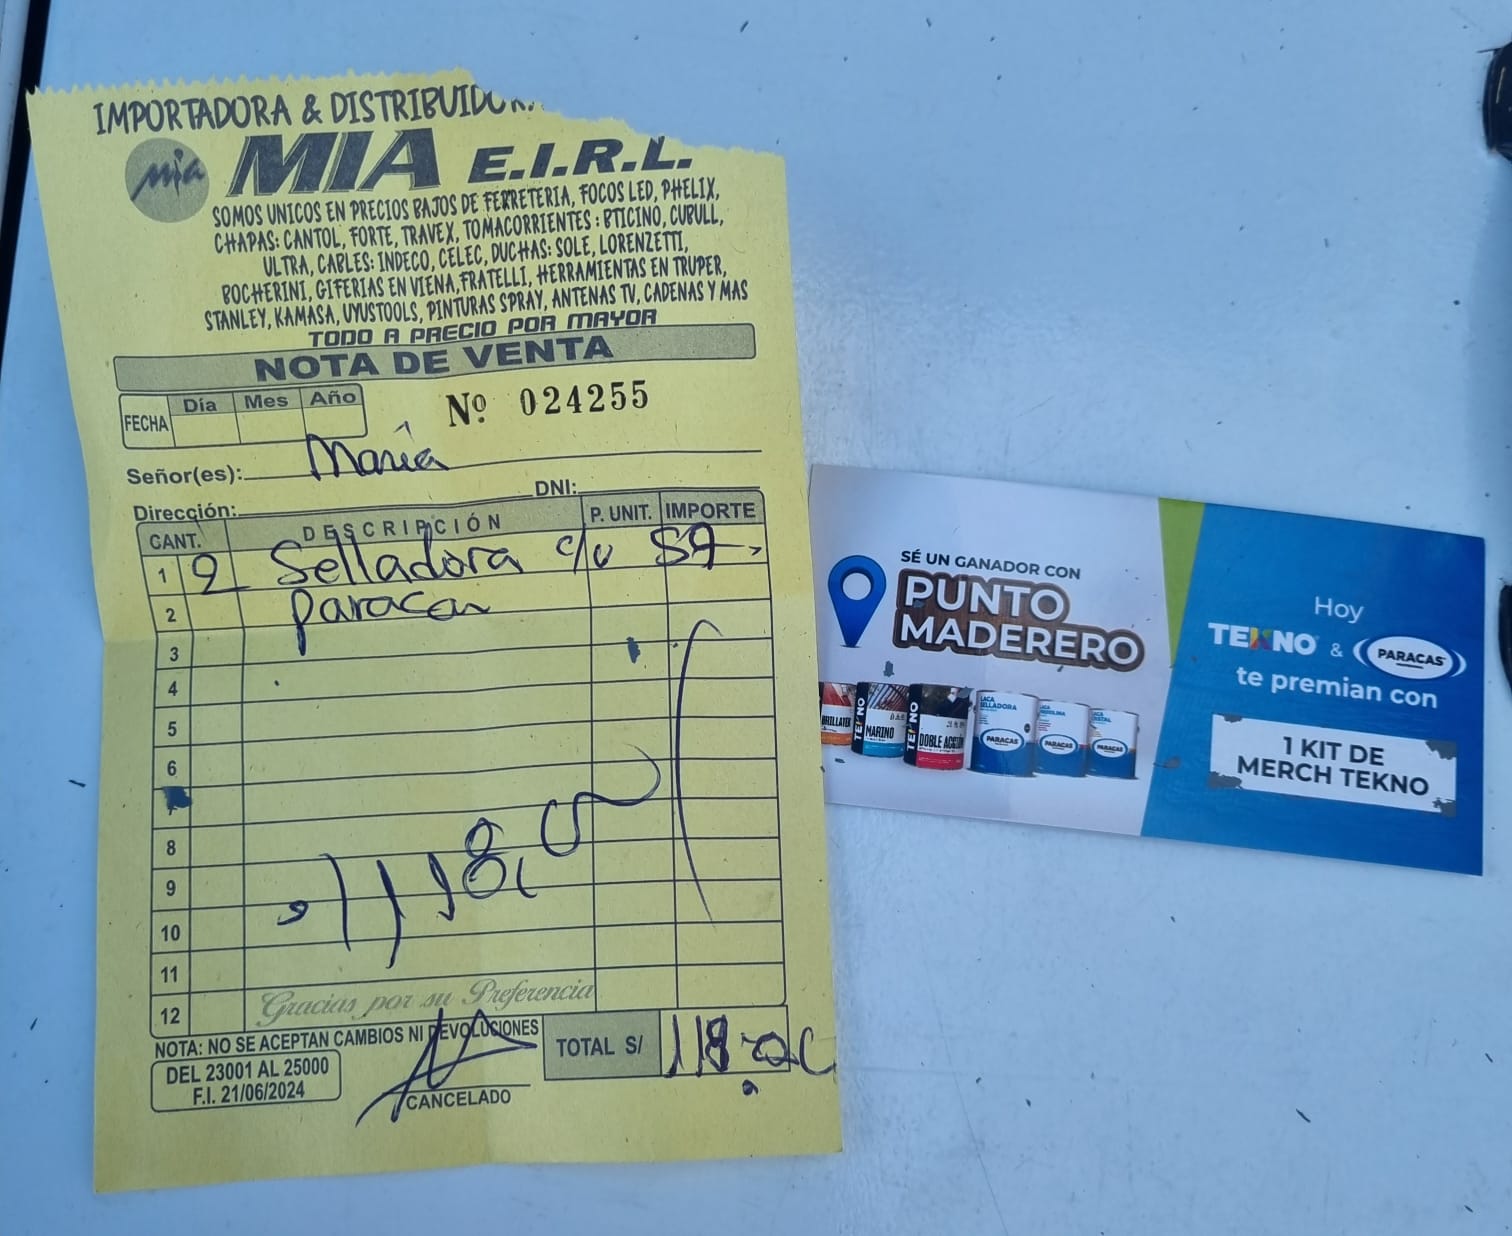 IMPORTADORA & DISTRIBUIDORA
mia
MIA E.I.R.L.
SOMOS UNICOS EN PRECIOS BAJOS DE FERRETERIA, FOCOS LED, PHELIX,
CHAPAS: CANTOL, FORTE, TRAVEX, TOMACORRIENTES : BTICINO, CUBULL,
ULTRA, CABLES: INDECO, CELEC, DUCHAS: SOLE, LORENZETTI,
BOCHERINI, GIFERIAS EN VIENA, FRATELLI, HERRAMIENTAS EN TRUPER,
STANLEY, KAMASA, UYUSTOOLS, PINTURAS SPRAY, ANTENAS TV, CADENAS Y MAS
TODO A PRECIO POR MAYOR
NOTA DE VENTA
FECHA Día Mes Año
Nº 024255
Señor(es): María
Dirección: DNI:
CANT. DESCRIPCIÓN P. UNIT. IMPORTE
1 2 Selladora c/u 59
2 Paracas
3
4
5
6
8
9
10
11
12
Gracias por su Preferencia
NOTA: NO SE ACEPTAN CAMBIOS NI DEVOLUCIONES
DEL 23001 AL 25000
F.I. 21/06/2024
CANCELADO
TOTAL S/ 118
SÉ UN GANADOR CON
PUNTO
MADERERO
BRILLATEX
TEKNO
MARINO
TEKNO
DOBLE ACCIÓN
LACA
SELLADORA
PARACAS
LACA
PARACAS
LACA
CRISTAL
PARACAS
Hoy
TEKNO & PARACAS
te premian con
1 KIT DE
MERCH TEKNO